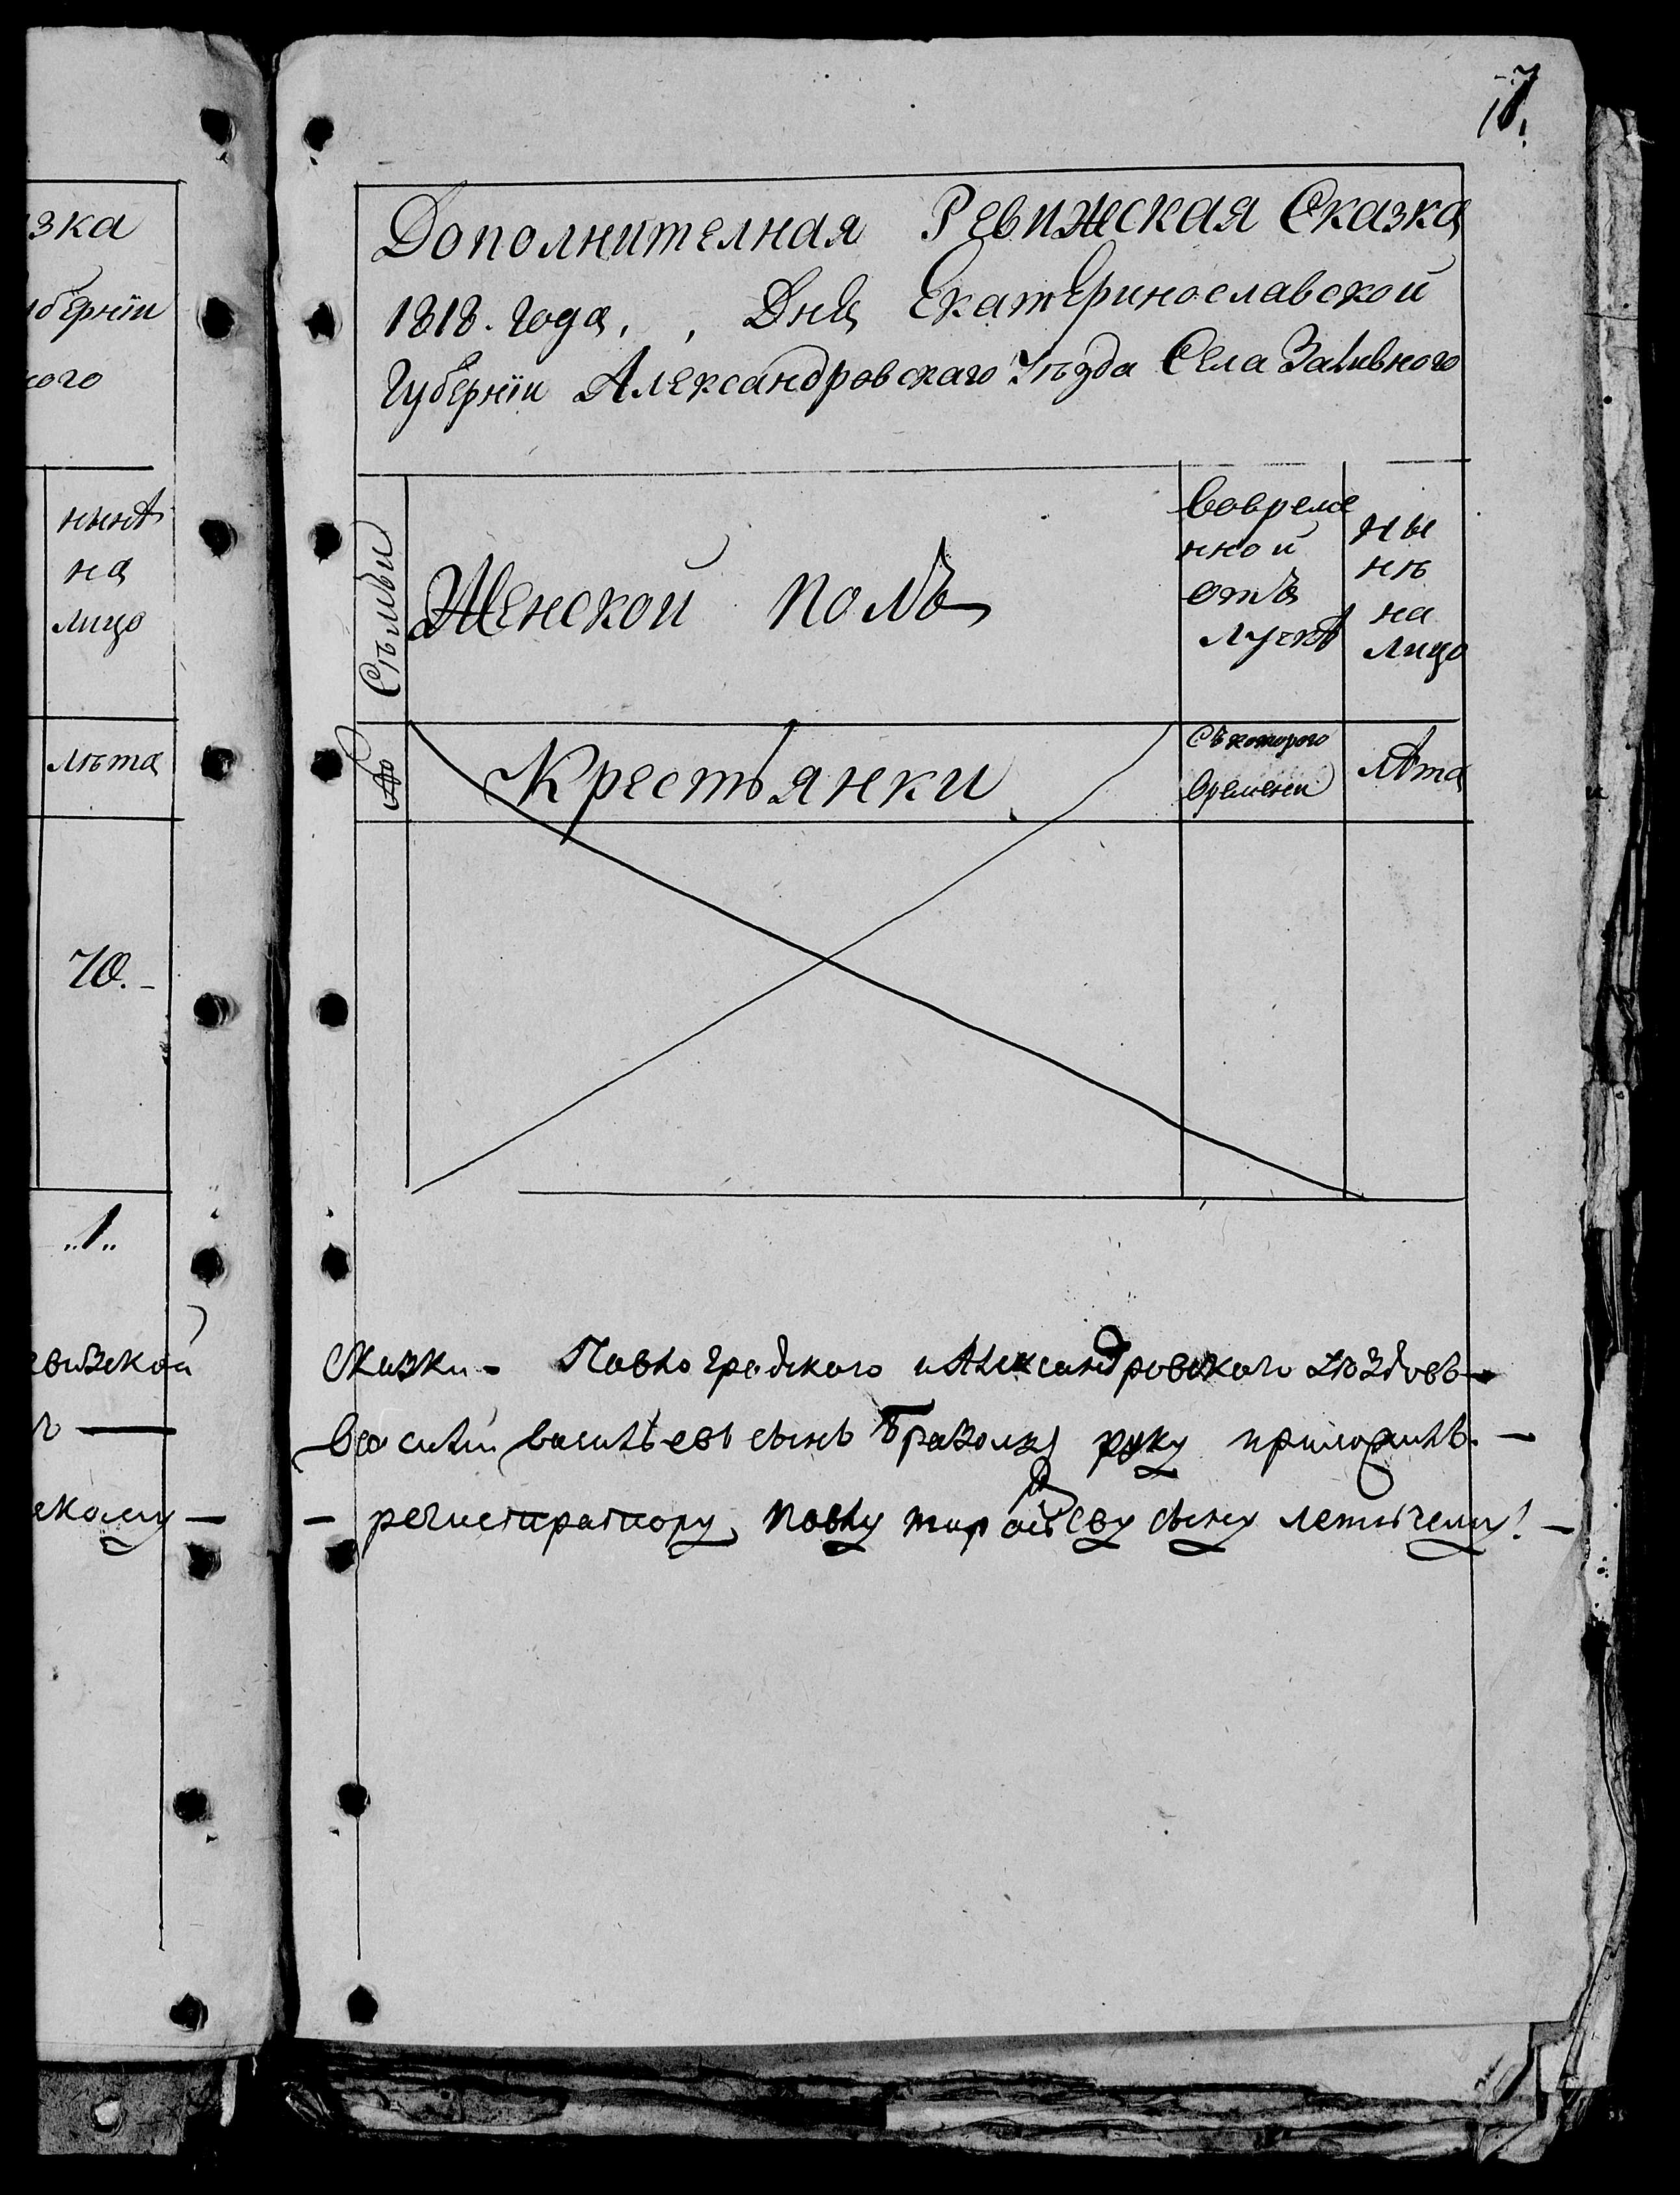 зка
бернїи
ного
нынѣ
на
лицо
лѣта
70.
"1"
евизской
скому
7.
Дополнителная Ревижская Сказка
1818. года, , Дня Екатеринославской
Губернїи Александровскаго Уѣзда Села Заливного
Сѣмьи
Женской полъ
вовреме
нной
отъ
лучкѣ
ны
нѣ
на
лицо
№
Крестьянки
съ котораго
времени
лѣта
Сказки - Павлоградского и Александровского
василий васильевъ сынъ руку приложилъ. -
- регистратору, павлу сыну